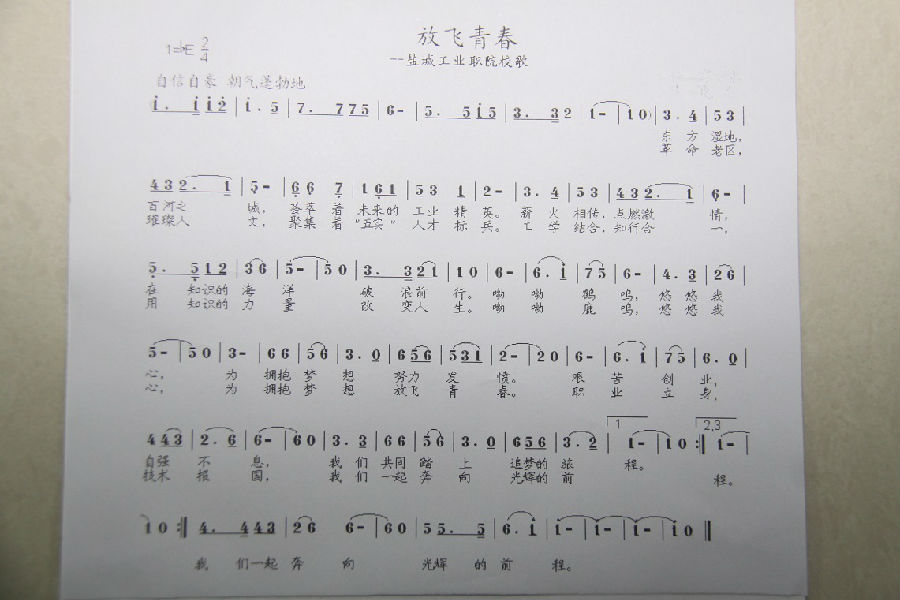 放飞青春
1=♭E 2/4
--盐城工业职院校歌
自信自豪 朝气蓬勃地
i. i i i 2 | i. 5 | 7. 7 7 5 | 6 - | 5. 5 i 5 | 3. 3 2 | 1 - | 1 0 | 3. 4 | 5 3 |
东方 湿地,
革命 老区,
4 3 2. 1 | 5 - | 6 6 7 | 1 6 1 | 5 3 1 | 2 - | 3. 4 | 5 3 | 4 3 2. 1 | 6 - |
百河之 城, 荟萃 着 未来的 工业 精 英。 薪 火 相传, 点燃激 情,
璀璨人 文, 聚集 着 “五实” 人才 标 兵。 工 学 结合, 知行合 一,
5. 5 1 2 | 3 6 | 5 - | 5 0 | 3. 3 2 1 | 1 0 | 6 - | 6. i | 7 5 | 6 - | 4. 3 | 2 6 |
在 知识的 海 洋 破 浪前 行。 呦 呦 鹤 鸣, 悠 悠 我
用 知识的 力 量 改 变人 生。 呦 呦 鹿 鸣, 悠 悠 我
5 - | 5 0 | 3 - | 6 6 | 5 6 | 3. 0 | 6 5 6 | 5 3 1 | 2 - | 2 0 | 6 - | 6. 1 | 7 5 | 6. 0 |
心, 为 拥抱 梦 想 努力 发 愤。 艰 苦 创 业,
心, 为 拥抱 梦 想 放飞 青 春。 职 业 立 身,
4 4 3 | 2. 6 | 6 - | 6 0 | 3. 3 | 6 6 | 5 6 | 3. 0 | 6 5 6 | 3. 2 | 1 1 - | 1 0 :‖ 2,3 1 - |
自强 不 息, 我 们 共同 踏 上 追梦的 旅 程。
技术 报 国, 我 们 一起 奔 向 光辉的 前 程。
1 0 :‖ 4. 4 4 3 | 2 6 6 - | 6 0 | 5 5. 5 | 6. 1 | i - | i - | i - | i 0 ‖
我 们一起 奔 向 光辉 的 前 程。